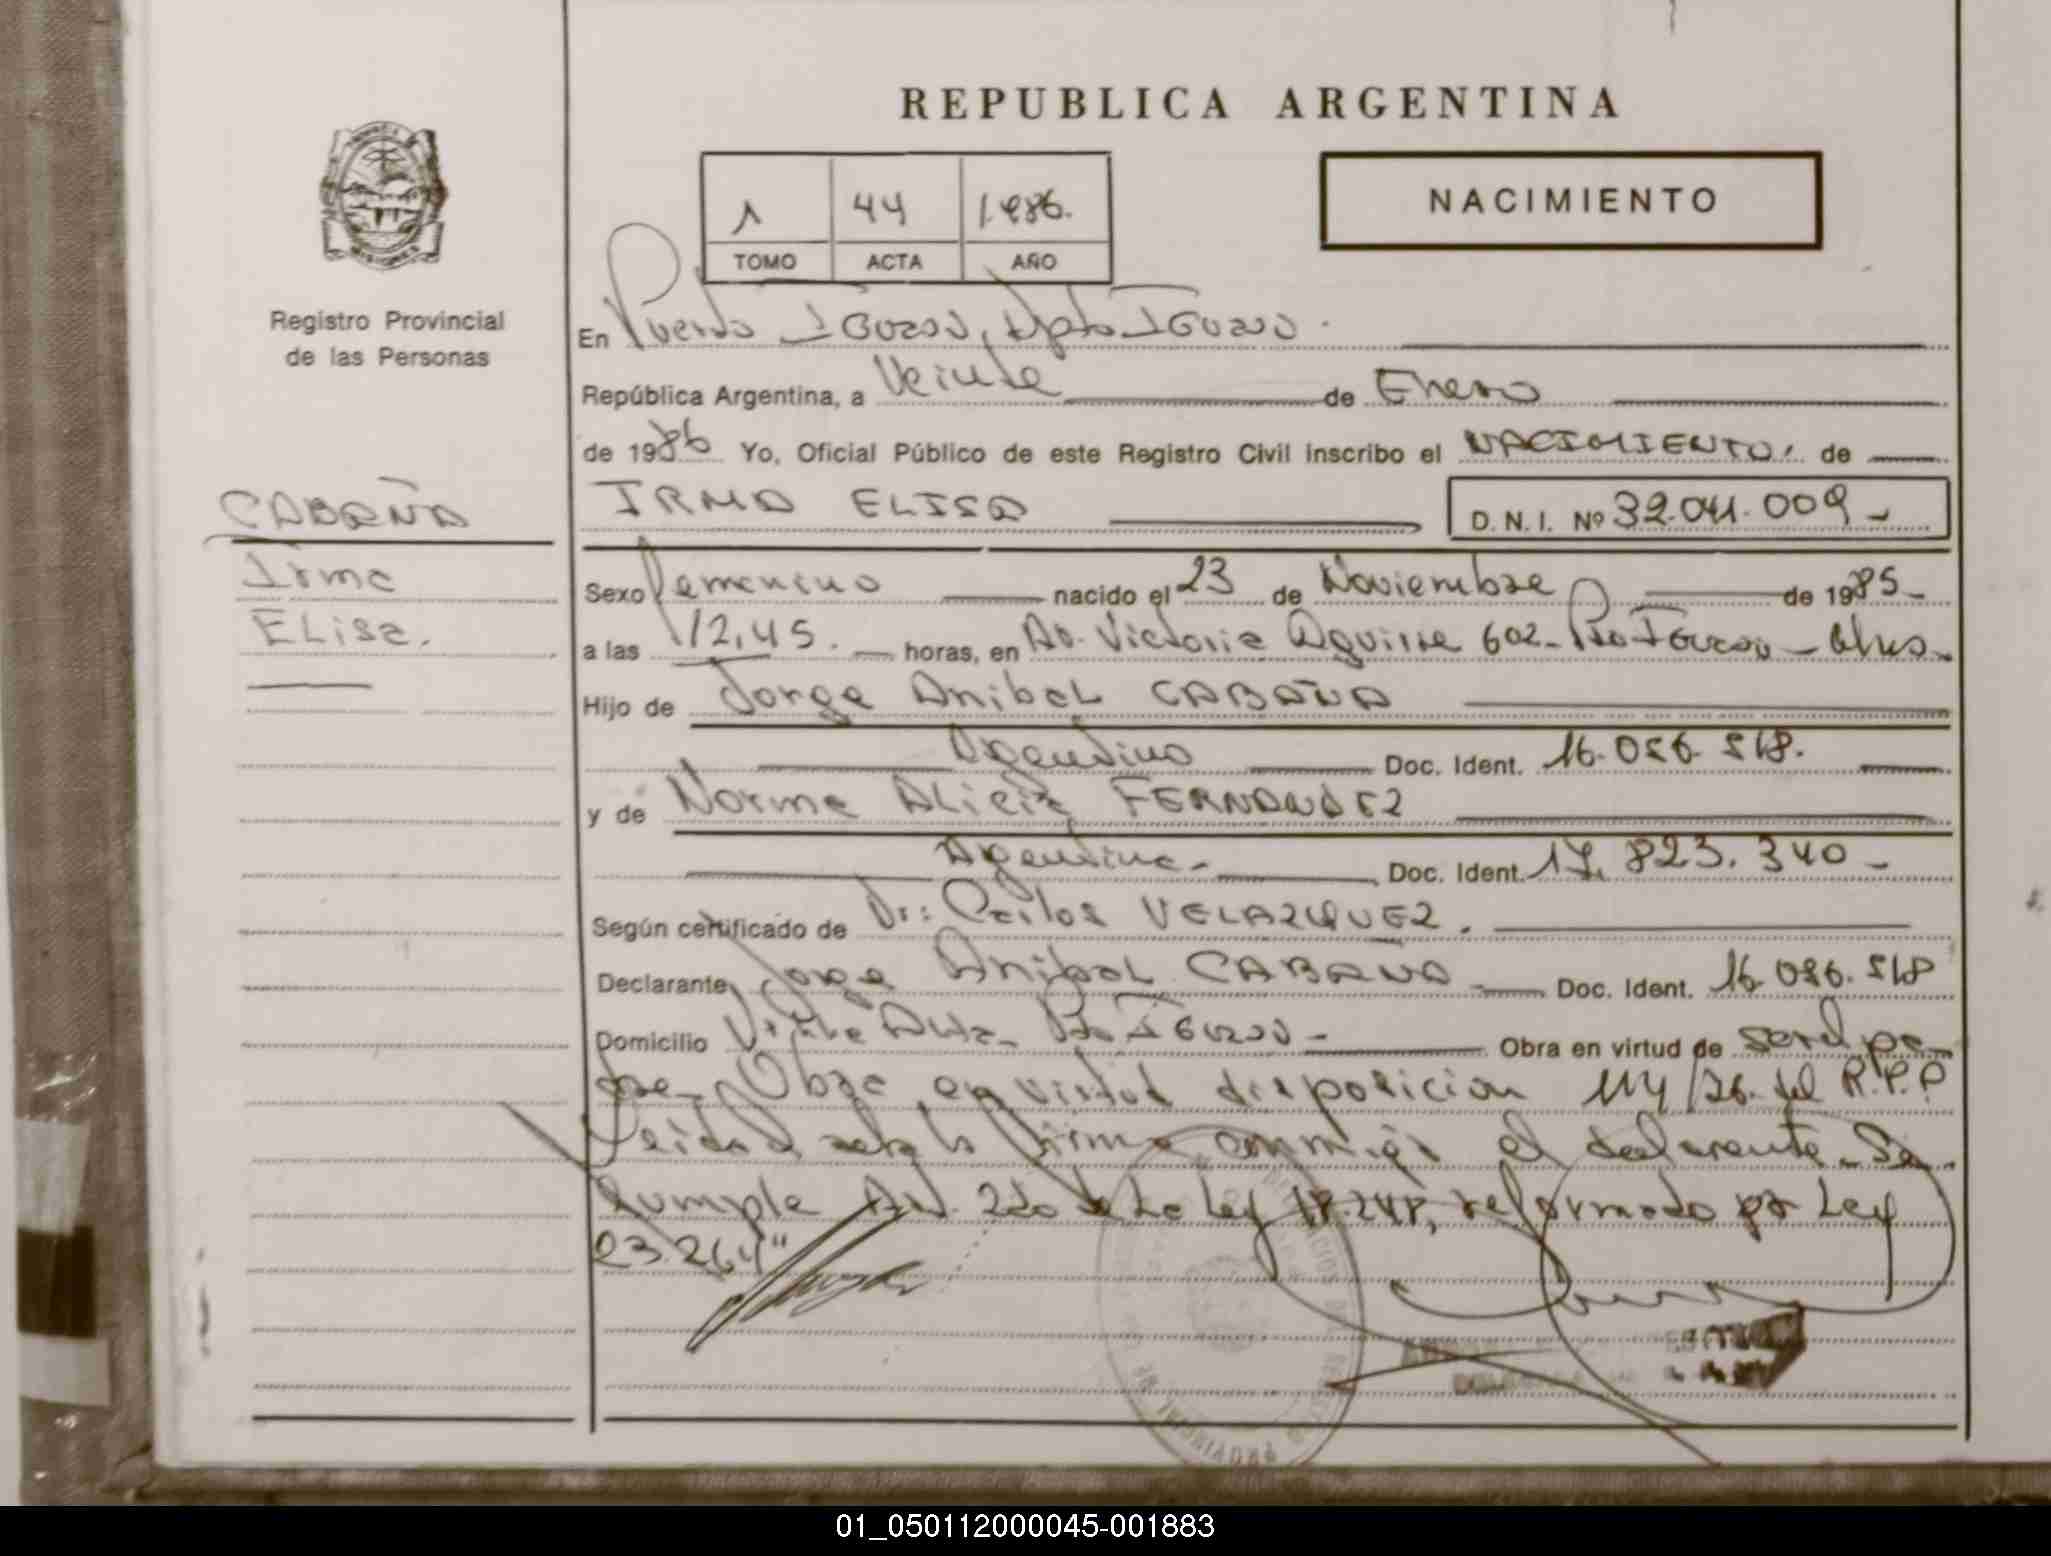 REPUBLICA ARGENTINA
1 44 1.986.
TOMO ACTA AÑO
NACIMIENTO
Registro Provincial
de las Personas
En Puerto IGuazu, Dpto IGuazu.
República Argentina, a Veinte de Enero
de 1986 Yo, Oficial Público de este Registro Civil inscribo el NACIMIENTO, de
CABAÑA
IRMA ELISA D. N. I. Nº 32.041.009-
Irma
Elisa.
Sexo Femenino nacido el 23 de Noviembre de 1985-
a las 12,45. horas, en Av. Victoria Aguirre 602- Pto IGuazu -
Hijo de Jorge Anibal CABAÑA
Argentino Doc. Ident. 16.086.518.
y de Norma Alicia FERNANDEZ
Argentina- Doc. Ident. 17.823.340-
Según certificado de Dr: Carlos VELAZQUEZ.
Declarante Jorge Anibal CABAÑA Doc. Ident. 16.086.518
Domicilio Pto IGuazu - Obra en virtud de ser el pa-
dre- Obra en virtud disposicion 114/76. del R.P.P
Leida el acta la firma conmigo el declarante- Se
cumple Art. 2do de la Ley 18.248, reformado por Ley
23.264"
PROVINCIAL
01_050112000045-001883